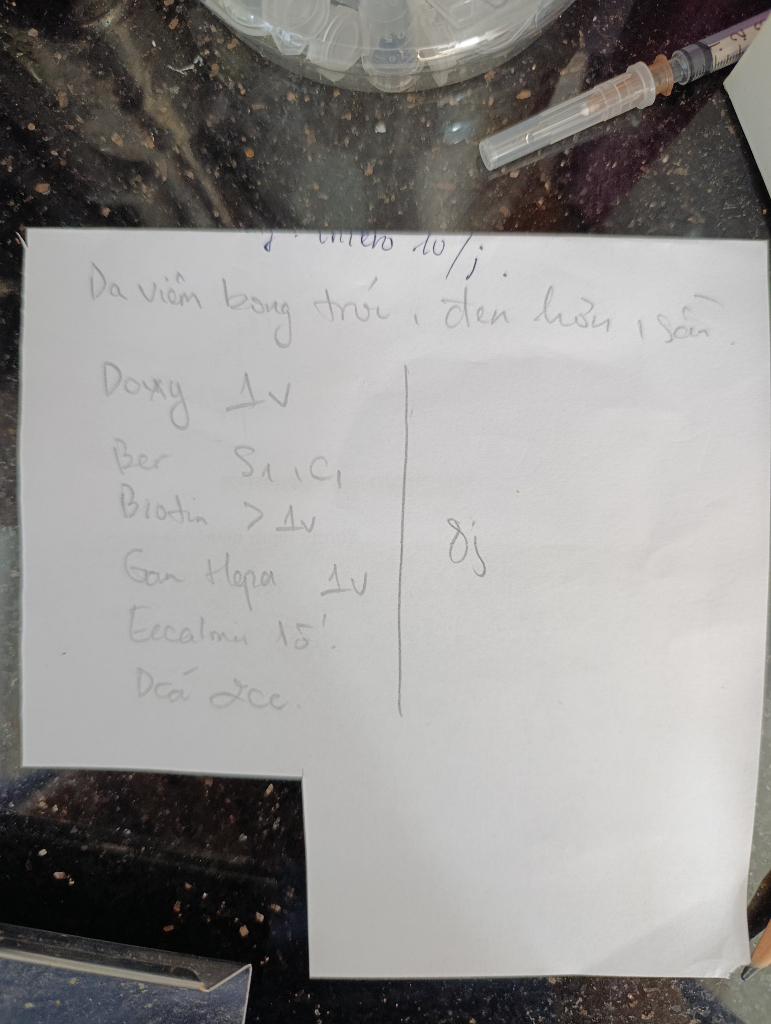 10/j.
Da viêm bong tróc, đen hơn, sần.
Doxy 1v
Ber S1, C1
Biotin > 1v
Gan Hepa 1v
15'.
Dcá 2cc.
8j